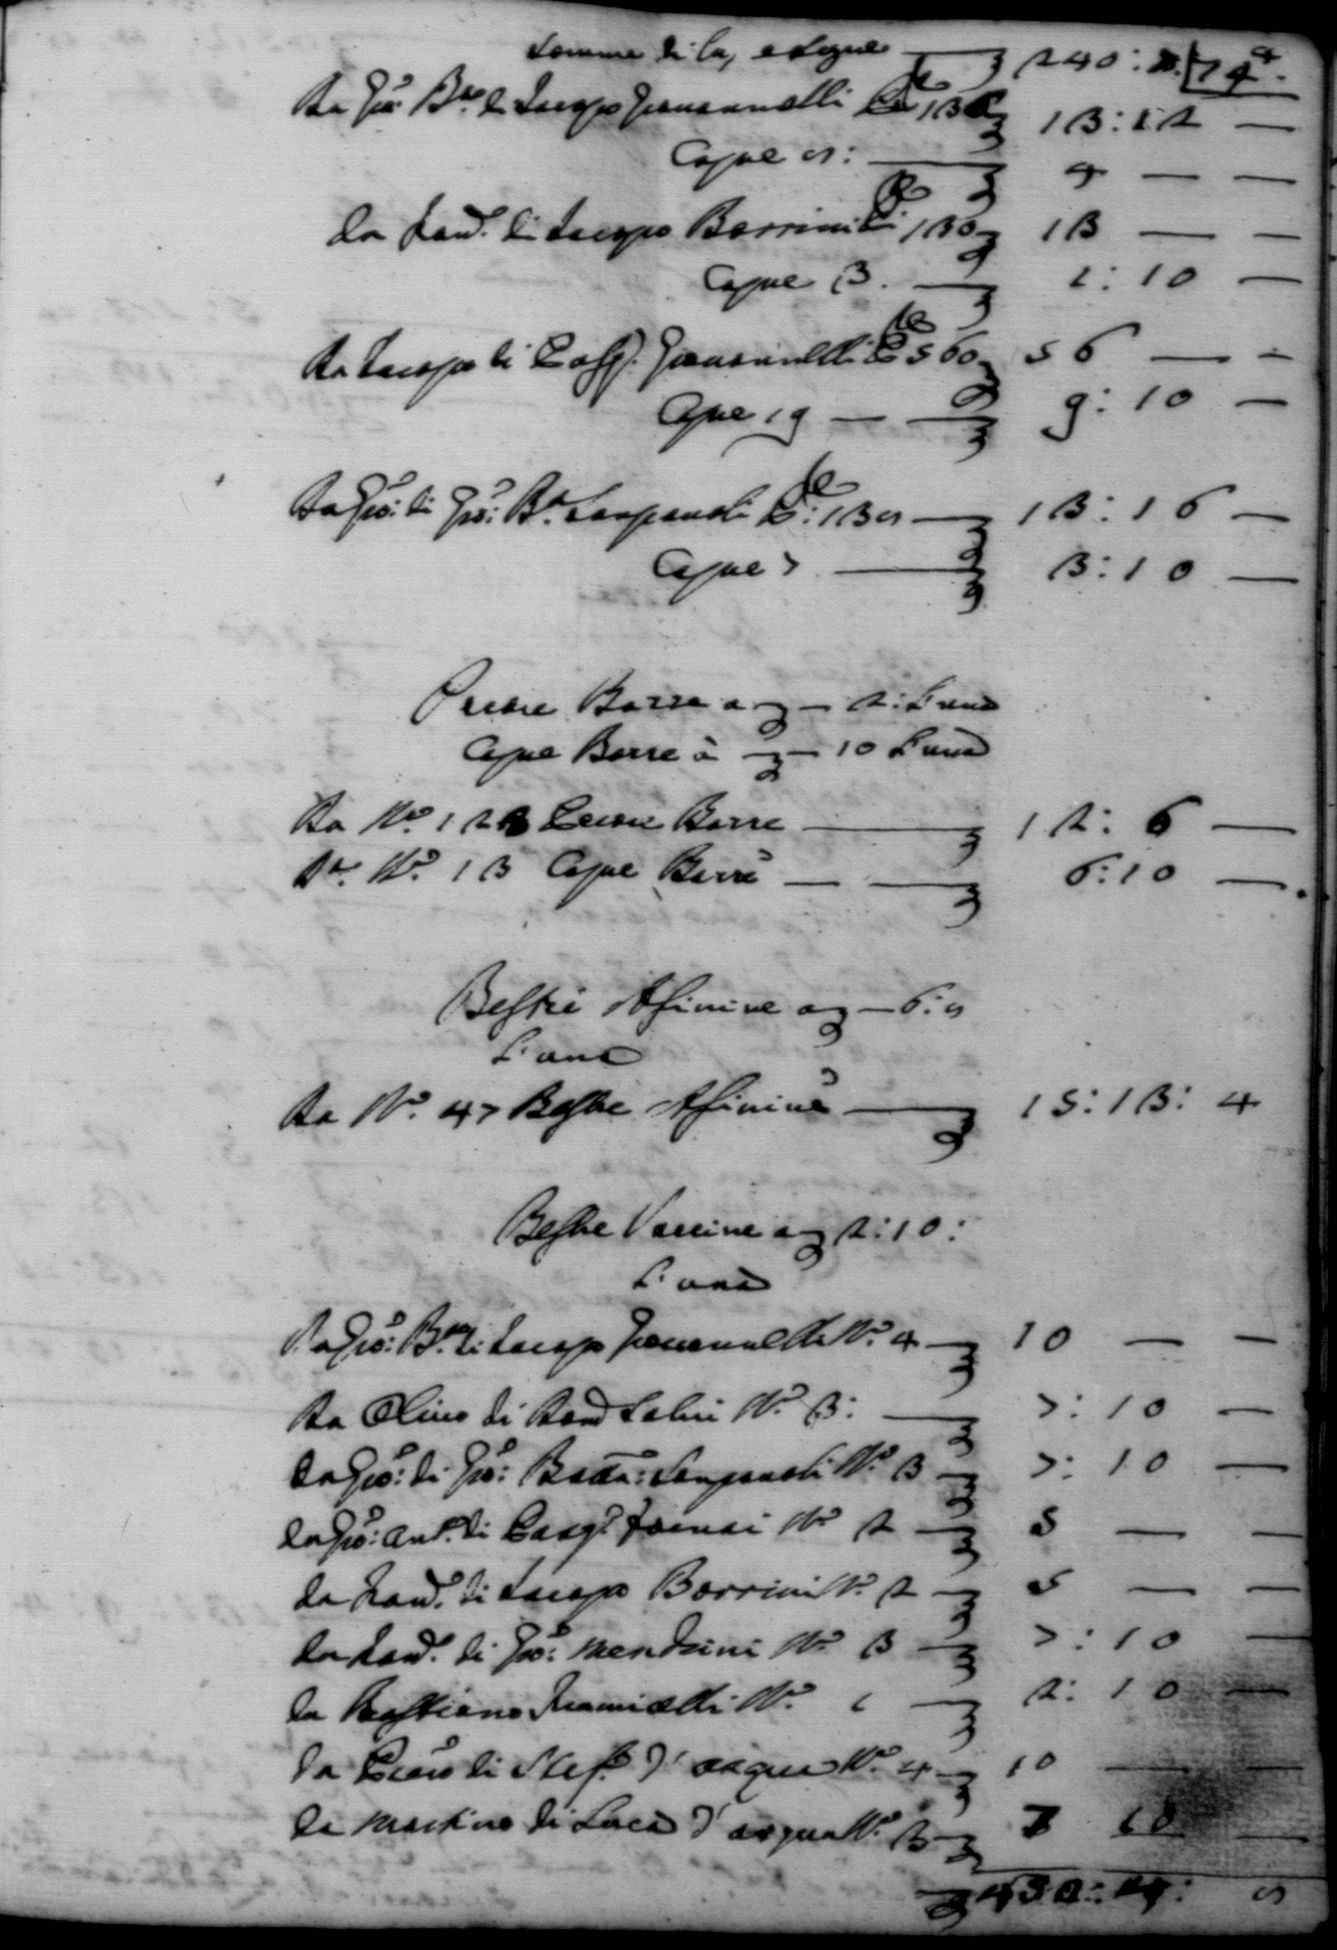 Somma di là, e segue — 240: 2: 74
Da Gio: Bta. di Iacopo Giovannelli Pe 136 — 13: 12 —
Capre 8: — 4 — —
Da Land. di Iacopo Borrini Pe 130 — 13 — —
Capre 3. — 1: 10 —
Da Iacopo di Gasp. Giovannelli Pe 560 — 56 — —
Capre 19 — 9: 10 —
Da Gio: di Gio: Bta. Pe: 138 — 13: 16 —
Capre 7 — 3: 10 —
Pecore Barre a — 2: L'una
Capre Barre à — 10 L'una
Da No. 123 Pecore Barre — 12: 6 —
Da No. 13 Capre Barre — 6: 10 —
Bestie Asinine a — 6: 8
L'una
Da No. 47 Bestie Asinine — 15: 13: 4
Bestie Vaccine a 2: 10:
L'una
Da Gio: Bta. di Iacopo Giovannelli No. 4 — 10 — —
Da Olivo di Dom Salvi No. 3: — 7: 10 —
Da Gio: di Gio: Batta: No. 3 — 7: 10 —
Da Gio: Ant. di Gasp. No. 2 — 5 — —
Da Land. di Iacopo Borrini No. 2 — 5 — —
Da Land. di Gio: Mendrini No. 3 — 7: 10 —
Da Bastiano No. 1 — 2: 10 —
Da di Stef. d'acqua No. 4 — 10 — —
Da Martino di Luca d'acqua No. 3 — 7 10 —